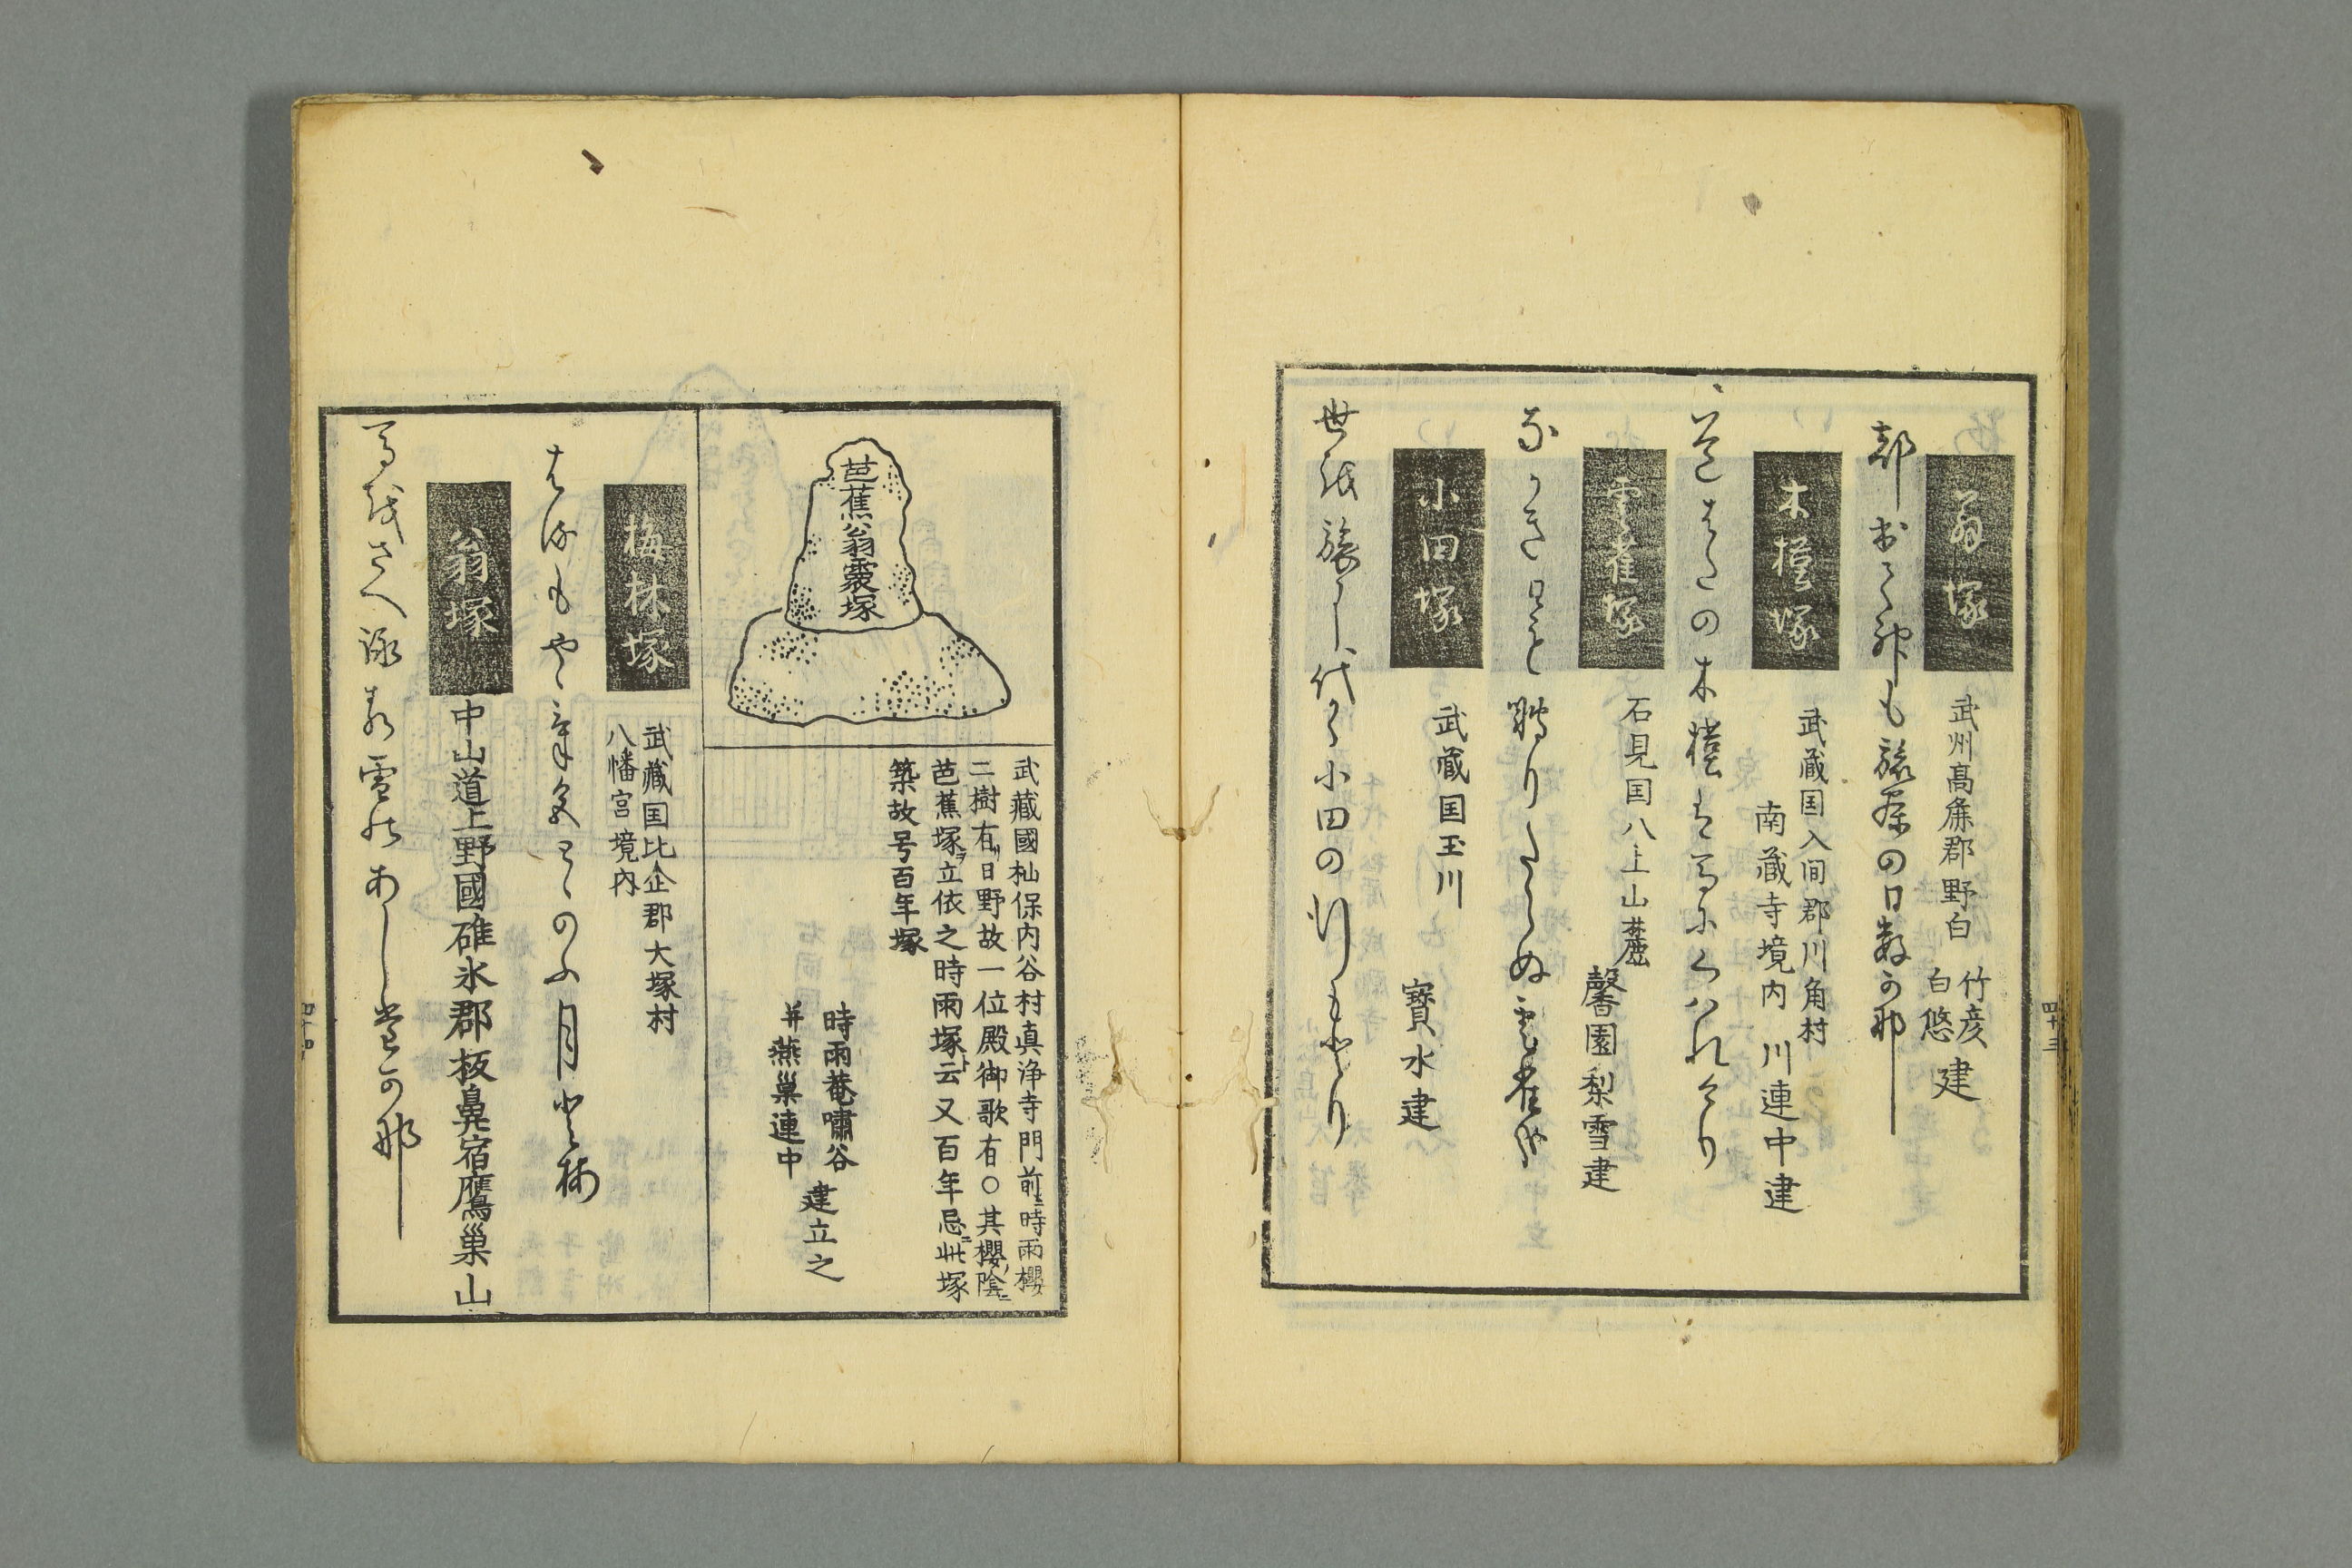 翁塚
武州高麻郡野白
竹彦
白悠
建
都出て神も旅寐の日数かな
木槿塚
武蔵国入间郡川角村
南蔵寺境内
川連中建
道はたの木槿は馬にくはれけり
雲雀塚
石見国八上山麓
馨園梨雪建
なかき日を囀りたらぬ雲雀哉
小田塚
武蔵国玉川
寳水建
世を旅に代かく小田の行もとり
四十三
芭蕉翁靈塚
武藏國杣保内谷村真浄寺門前ニ時雨櫻
二樹有リ日野故一位殿御歌有〇其櫻ノ陰ニ
芭蕉塚ヲ立依之時雨塚ト云又百年忌ニ此塚
築故号百年塚
時雨菴嘯谷
并燕巣連中
建立之
梅林塚
武藏国比企郡大塚村
八幡宮境内
はるもやゝけしきとゝのふ月と梅
翁塚
中山道上野國碓氷郡板鼻宿鷹巣山
馬をさへ詠る雪のあした哉
四十四